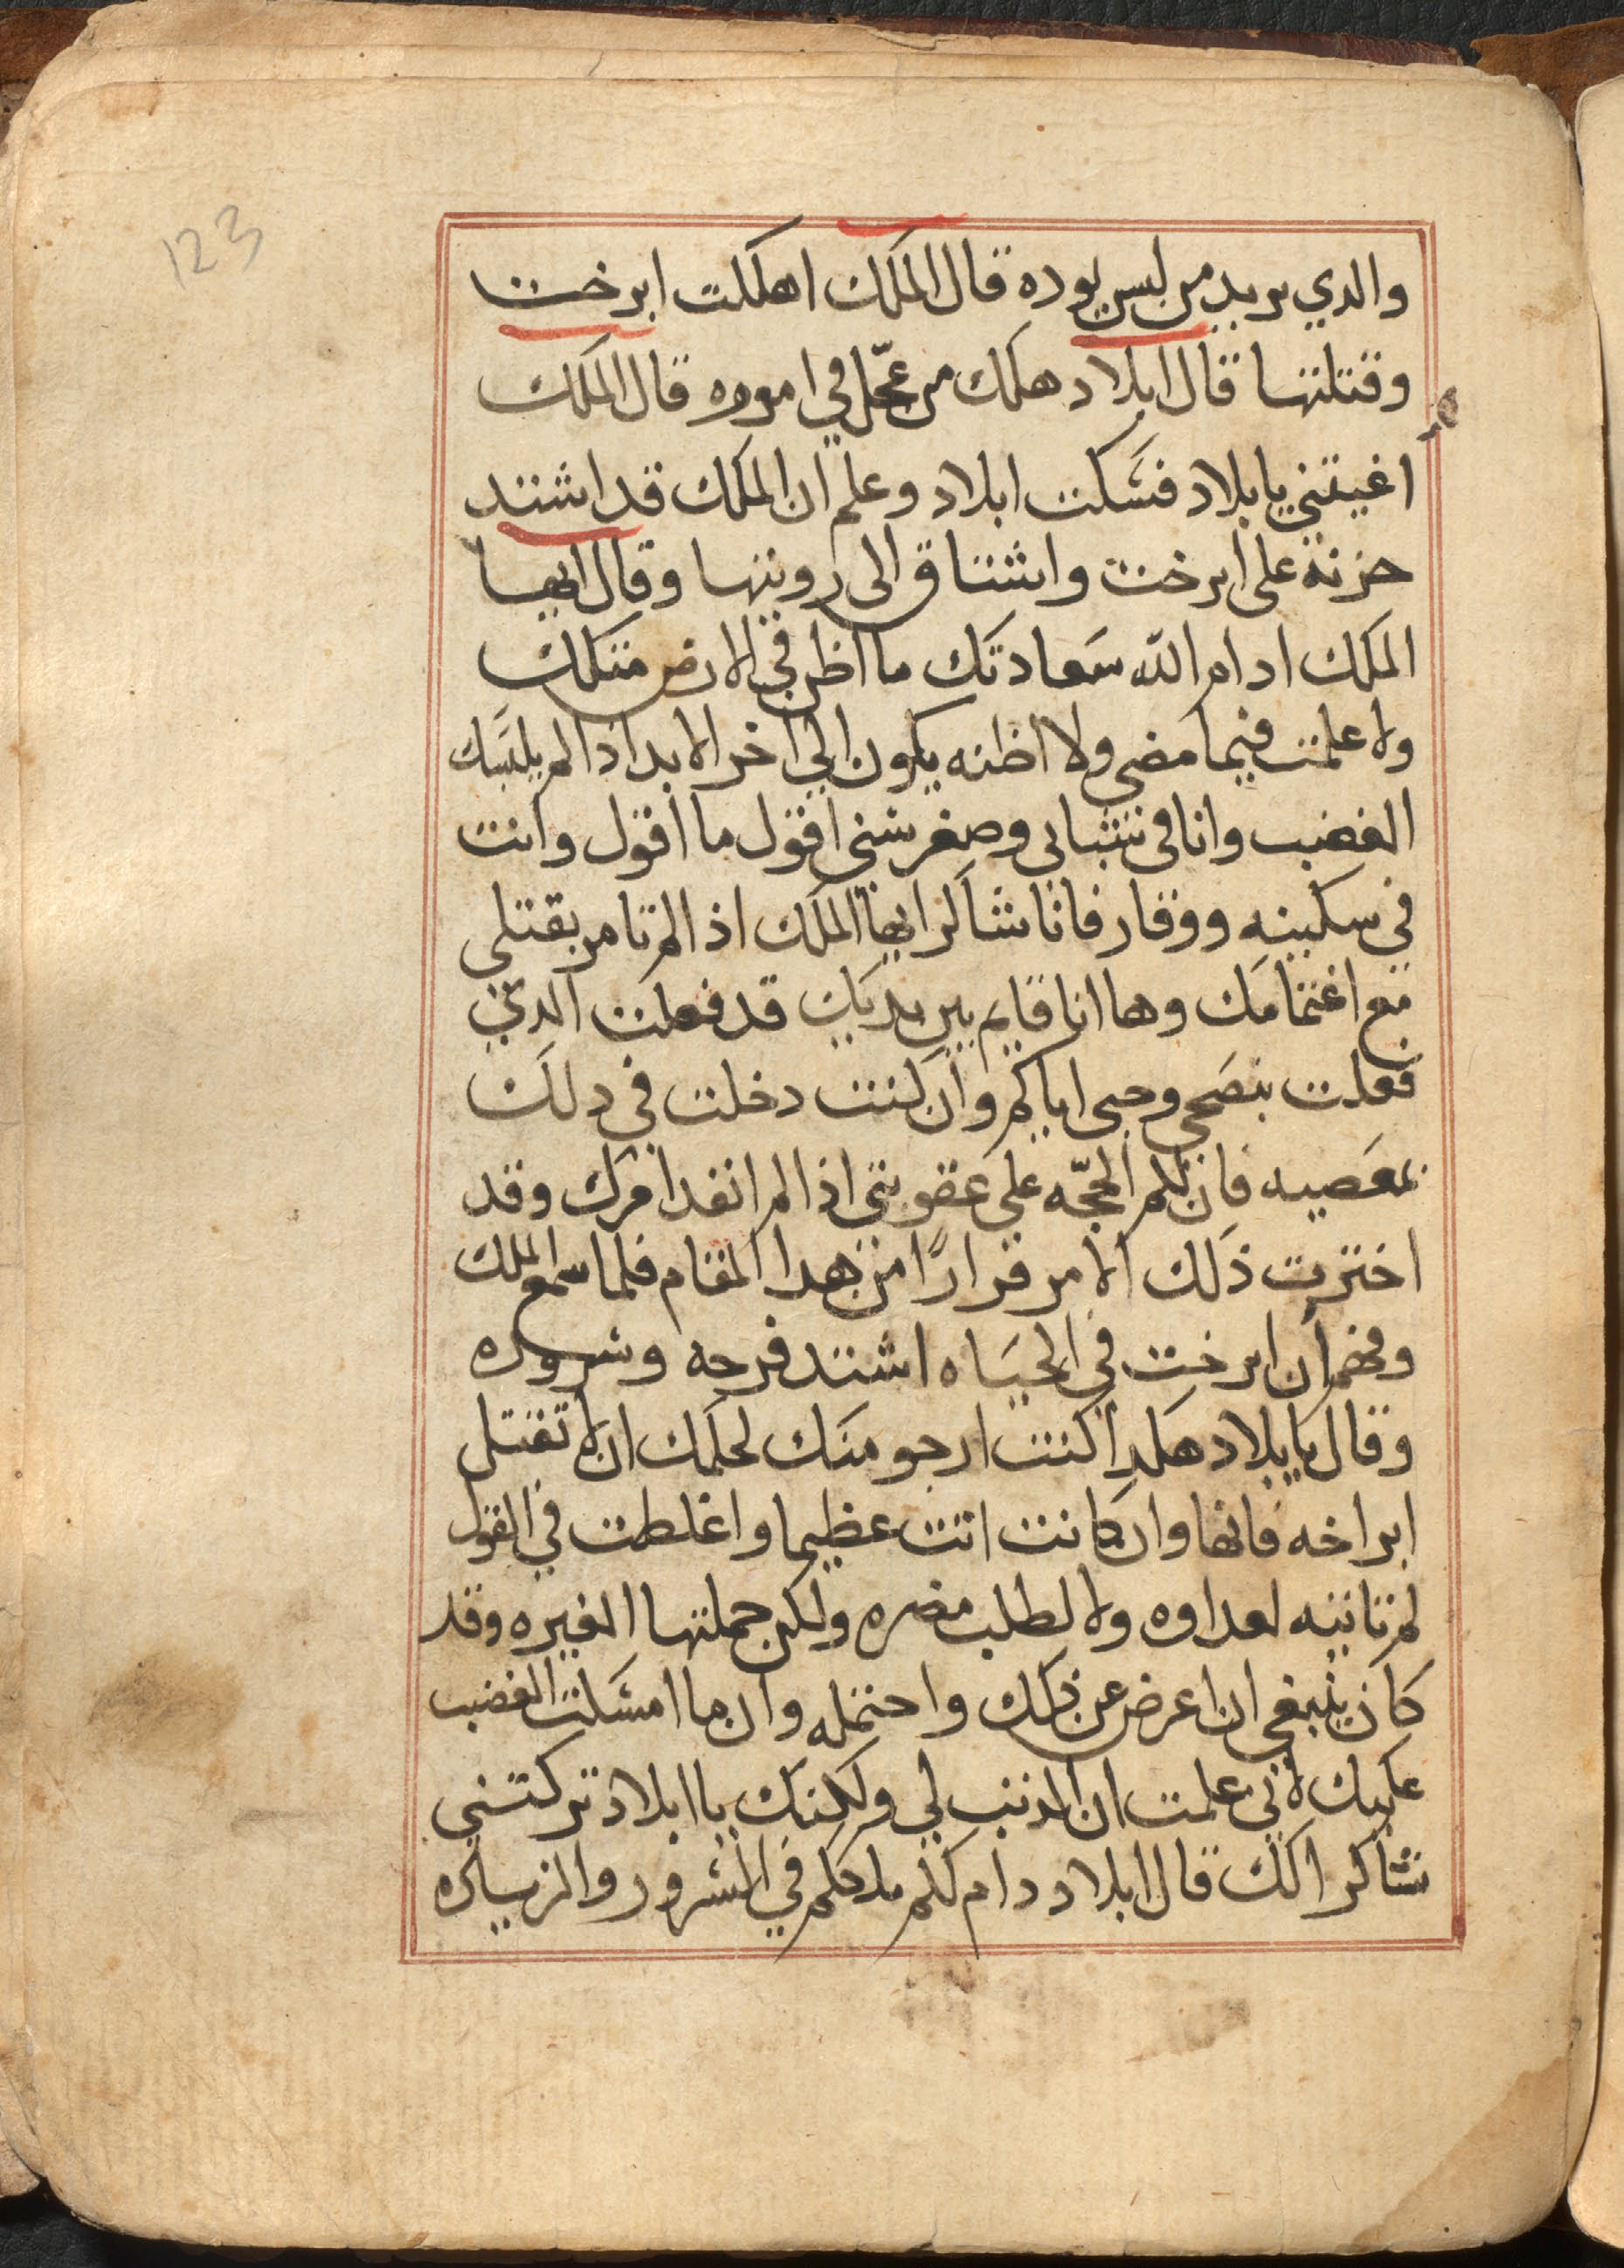 123
والدي يريد من ليس يوده قال الملك اهلكت ابرخت
وقتلتها قال ابلاد هلك من عجّل في اموره قال الملك
اغيتني يا بلاد فسكت ابلاد وعلم ان الملك قد اشتد
حزنه على ابرخت واشتاق الى رويتها وقال ايها
الملك ادام الله سعادتك ما اظن في الارض متلك
ولا علمت فيما مضى ولا اظنه يكون الي اخر الابد اذا لم يلبسك
الغضب وانا في شبابي وصغر سني اقول ما اقول وانت
في سكينه ووقار فانا شاكر ايها الملك اذ الم تامر بقتلي
مع اغتمامك وها انا قايم بين يديك قد فعلت الدي
فعلت بنصحي وحبى اياكم وان كنت دخلت في دلك
بمعصيه فان لكم الحجّه علي عقوبتي اذا لم انفد امرك وقد
اخترت ذلك الامر قرارًا من هدا المقام فلما سمع الملك
وفهم ان ابرخت في الحياه اشتد فرحه وسروره
وقال يا بلاد هكدا كنت ارجو منك لحلمك ان لا تقتل
ابراخه فانها وان كانت اتت عظيما واغلطت في القول
لم تاتيه لعداوه ولا لطلب مضره ولكن حملتها الغيره وقد
كان ينبغي ان اعرض عن ذلك واحتمله وان ما امسكت الغضب
عليك لاني علمت ان الذنب لي ولكنك يا ابلاد تركتني
شاكرا لك قال ابلاد دام لكم ملككم في السرور والزياده